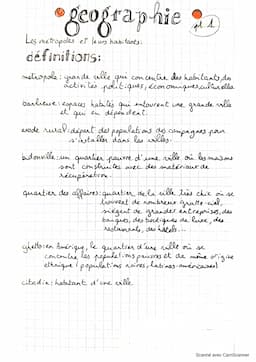 geographie
pt. 1
Les métropoles et leurs habitants:
définitions:
métropole: grande ville qui concentre des habitants, des
activités politiques, économiques, culturelles
banlieue: espaces habités qui entourent une grande ville
et qui en dépendent.
exode rural: départ des populations des campagnes pour
s'installer dans les villes.
bidonville: un quartier pauvre d'une ville où les maisons
sont construites avec des matériaux de
récupération.
quartier des affaires: quartier de la ville très chic où se
trouvent de nombreux gratte-ciel,
sièges de grandes entreprises, des
banques, des boutiques de luxe, des
restaurants, des hôtels...
ghetto: en Amérique, le quartier d'une ville où se
contre les populations pauvres et de même origine
ethnique (populations noires, latinos-américaines)
citadin: habitant d'une ville
Scanné avec CamScanner